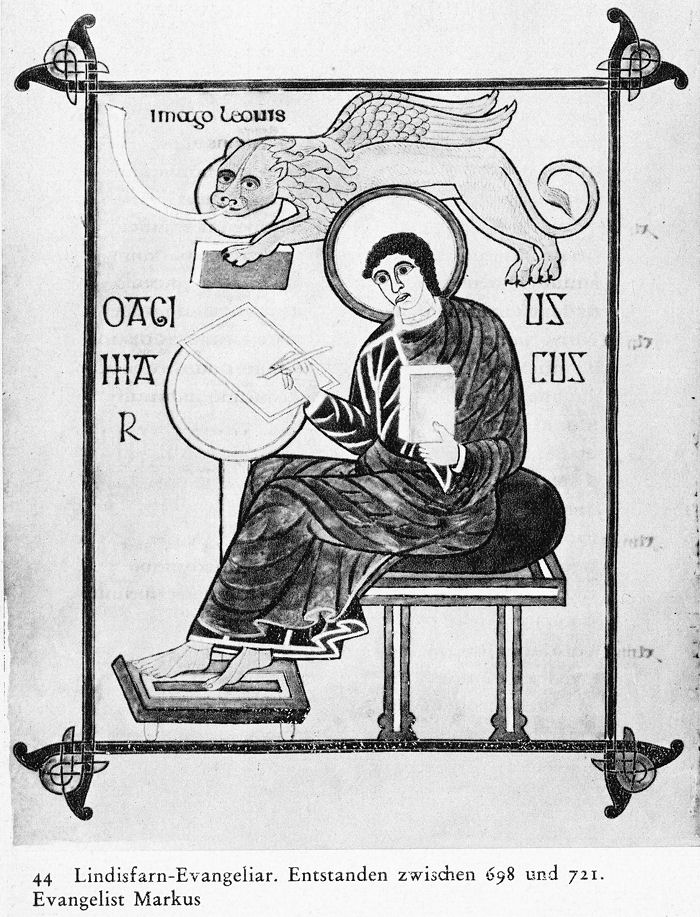 imago leonis
OAGI US
MAR CUS
44 Lindisfarn-Evangeliar. Entstanden zwischen 698 und 721.
Evangelist Markus